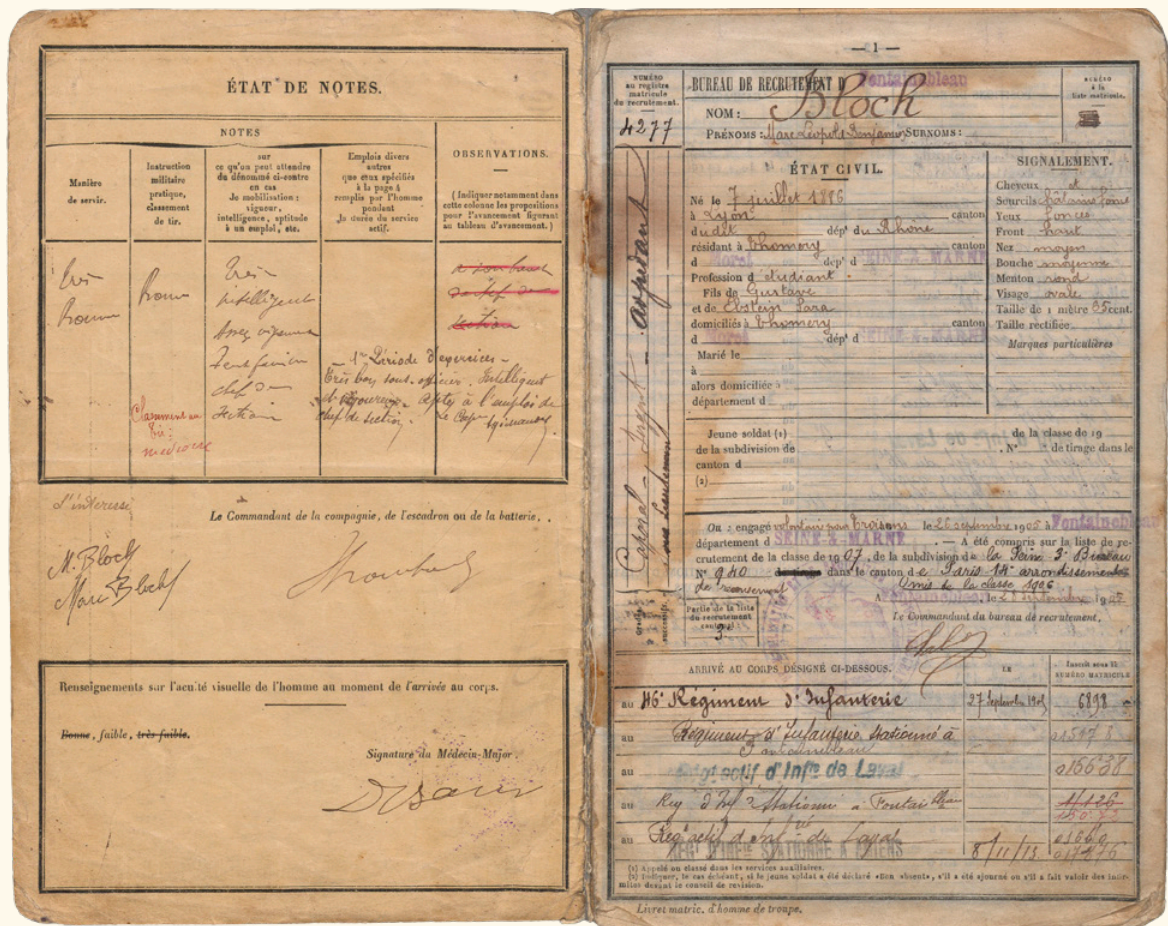 ÉTAT DE NOTES.
NOTES
Manière
de servir.
Instruction
militaire
pratique,
classement
de tir.
sur
ce qu'on peut attendre
du dénommé ci-contre
en cas
de mobilisation :
vigueur,
intelligence, aptitude
à un emploi, etc.
Emplois divers
autres
que ceux spécifiés
à la page 4
remplis par l'homme
pendant
la durée du service
actif.
OBSERVATIONS.
(Indiquer notamment dans
cette colonne les propositions
pour l'avancement figurant
au tableau d'avancement.)
Très
Bonne
Bonne
Classement au
tir :
médiocre
Très
intelligent
Assez vigoureux
chef de
section
section
1re Période d'exercices -
Très bon sous-officier. Intelligent
et vigoureux. Apte à l'emploi de
chef de section. Le Capne
L'intéressé
Le Commandant de la compagnie, de l'escadron ou de la batterie,
M. Bloch
Marc Bloch
Renseignements sur l'acuité visuelle de l'homme au moment de l'arrivée au corps.
Bonne, faible, très faible.
Signature du Médecin-Major.
— 1 —
NUMÉRO
au registre
matricule
du recrutement.
4277
BUREAU DE RECRUTEMENT D Fontainebleau
NOM : Bloch
PRÉNOMS : Marc Léopold Benjamin SURNOMS :
NUMÉRO
à la
liste matricule.
Caporal - Sergent - adjudant
sous lieutenant
Grades
successifs.
ÉTAT CIVIL.
Né le 7 juillet 1886
à Lyon canton
dudit dépt du Rhône
résidant à Thomery canton
d Moret dépt d SEINE-&-MARNE
Profession d'étudiant
Fils de Gustave
et de Ebstein Sara
domiciliés à Thomery canton
d Moret dépt d SEINE-&-MARNE
Marié le
à
alors domiciliée à
département d
SIGNALEMENT.
Cheveux et
Sourcils châtains foncé
Yeux foncés
Front haut
Nez moyen
Bouche moyenne
Menton rond
Visage ovale
Taille de 1 mètre 65 cent.
Taille rectifiée
Marques particulières
Jeune soldat (1) de la classe de 19
de la subdivision de . N° de tirage dans le
canton d
(2)
Ou : engagé volontaire pour trois ans le 26 septembre 1905 à Fontainebleau
département d SEINE-&-MARNE . — A été compris sur la liste de re-
crutement de la classe de 1907, de la subdivision de la Seine 3e Bureau
N° 940 de tirage dans le canton de Paris 14e arrondissement
de recensement Omis de la classe 1906
A Fontainebleau, le 28 septembre 19
Le Commandant du bureau de recrutement,
Partie de la liste
du recrutement
cantonal :
3e
ARRIVÉ AU CORPS DÉSIGNÉ CI-DESSOUS.
LE
Inscrit sous le
NUMÉRO MATRICULE
au 46e Régiment d'Infanterie 27 Septembre 1905 6898
au Régiment d'Infanterie stationné à
Fontainebleau
au Régt actif d'Infie de Laval 016638
au Rég d'Inf stationné à Fontainebleau
au Régt actif d'Infrie de Laval
RÉGt D'INFIE STATIONNÉ A AMIENS 8/11/13
(1) Appelé ou classé dans les services auxiliaires.
(2) Indiquer, le cas échéant, si le jeune soldat a été déclaré «Bon absent», s'il a été ajourné ou s'il a fait valoir des infir-
mités devant le conseil de revision.
Livret matric. d'homme de troupe.